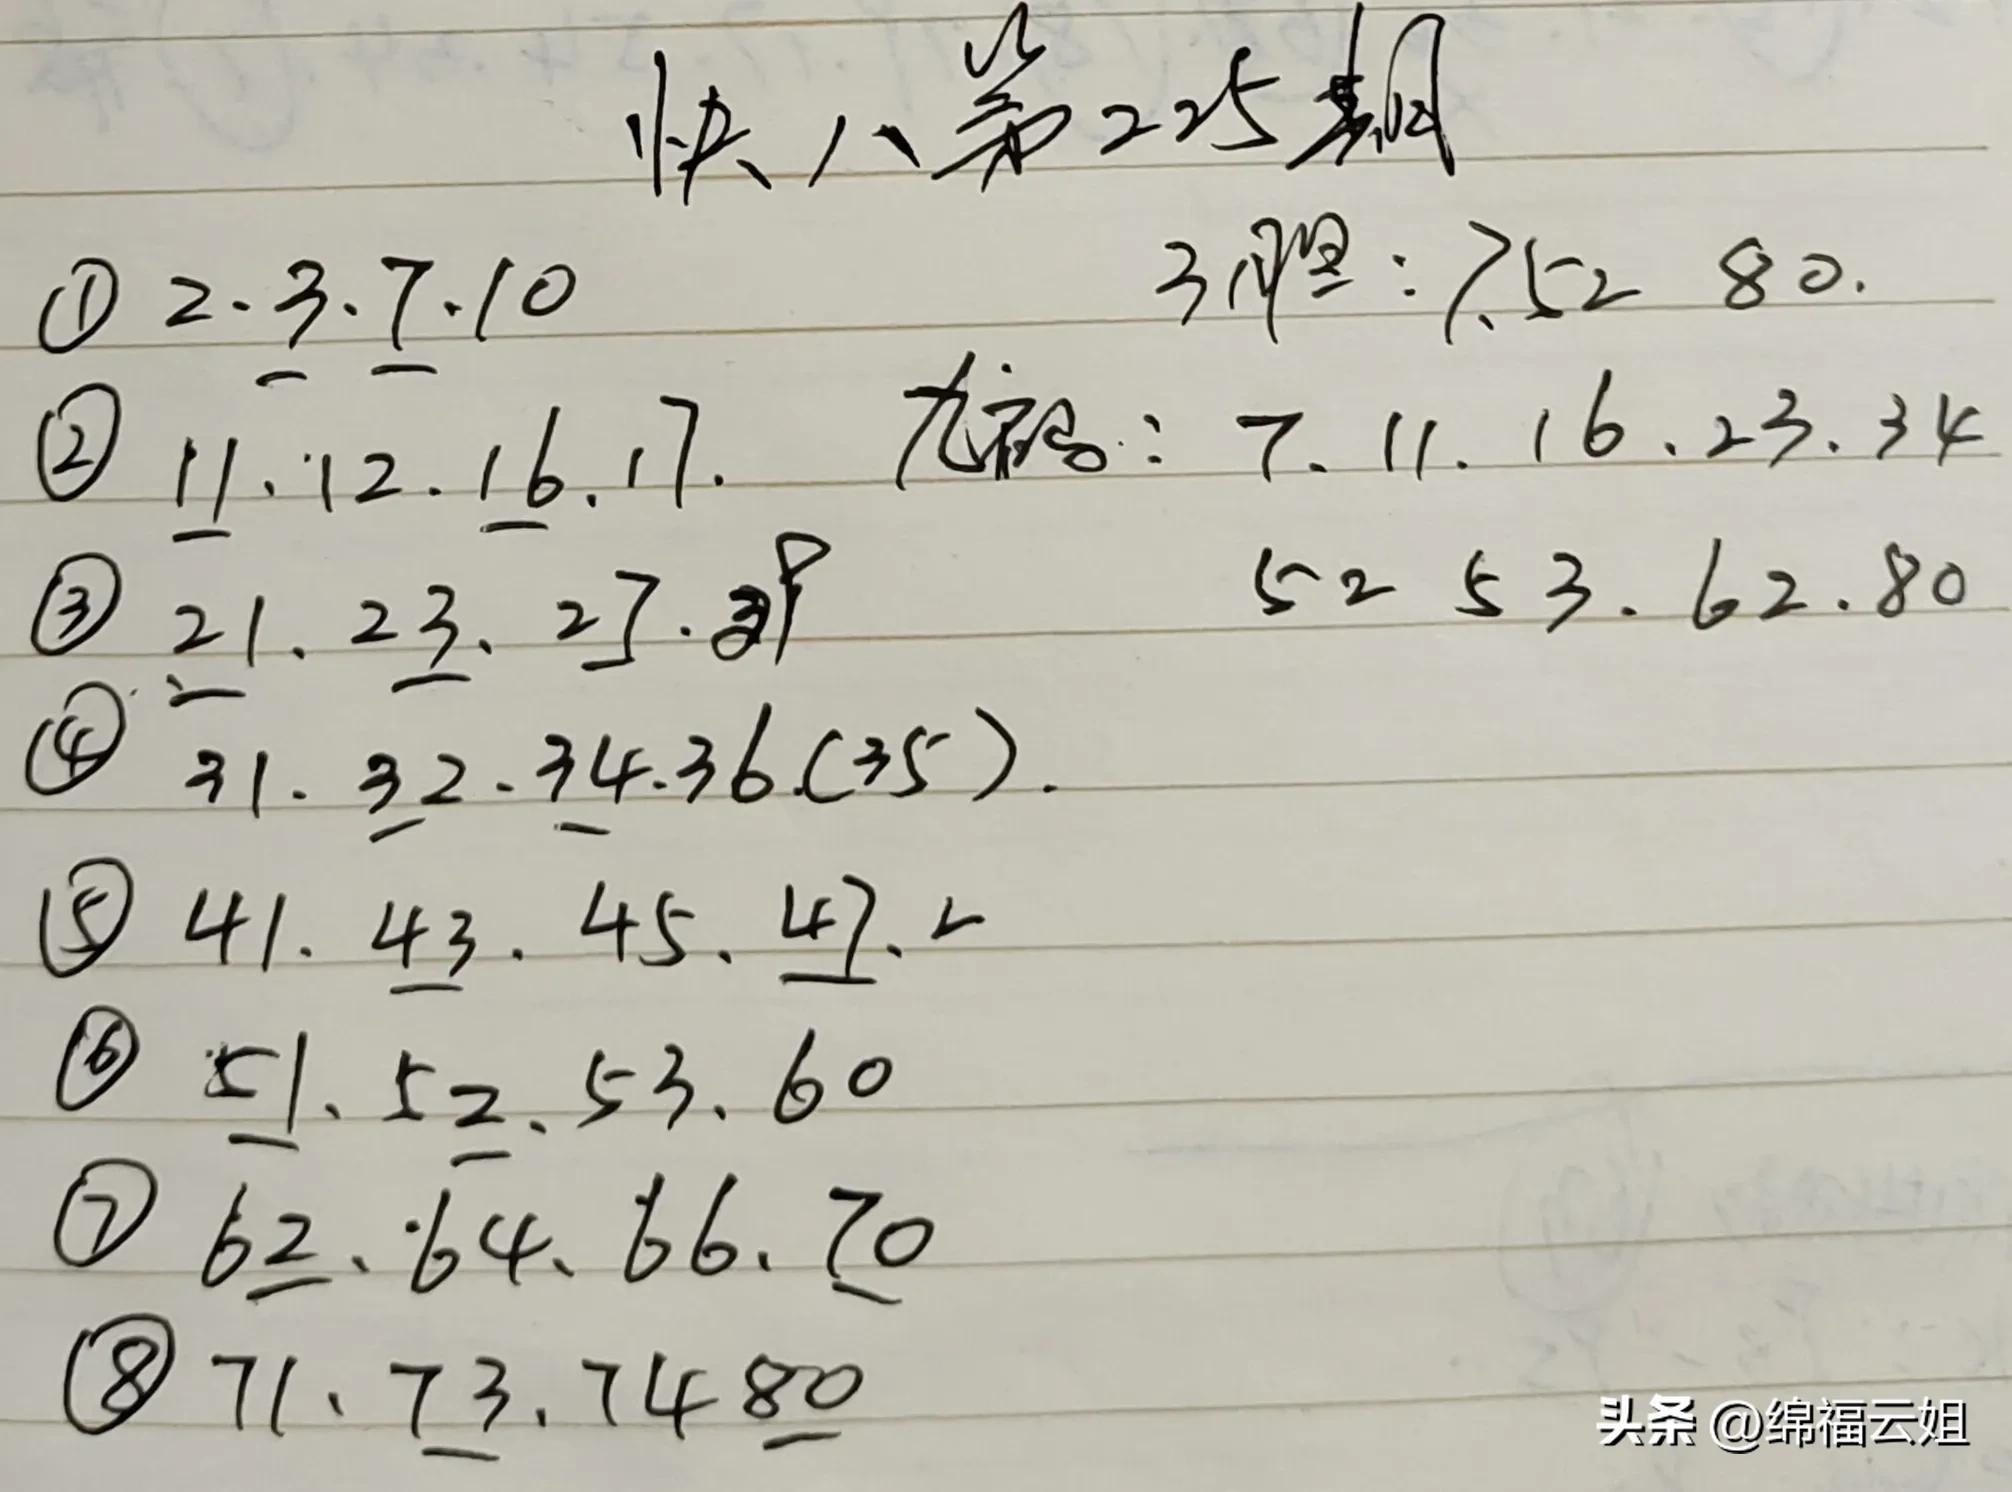 快八第225期
3胆：7.52 80.
① 2.3.7.10
九码：7.11.16.23.34
② 11.12.16.17.
52 53.62.80
③ 21.23.27.
④ 31.32.34.36.(35).
⑤ 41.43.45.47.
⑥ 51.52.53.60
⑦ 62.64.66.70
⑧ 71.73.74 80
头条 @绵福云姐